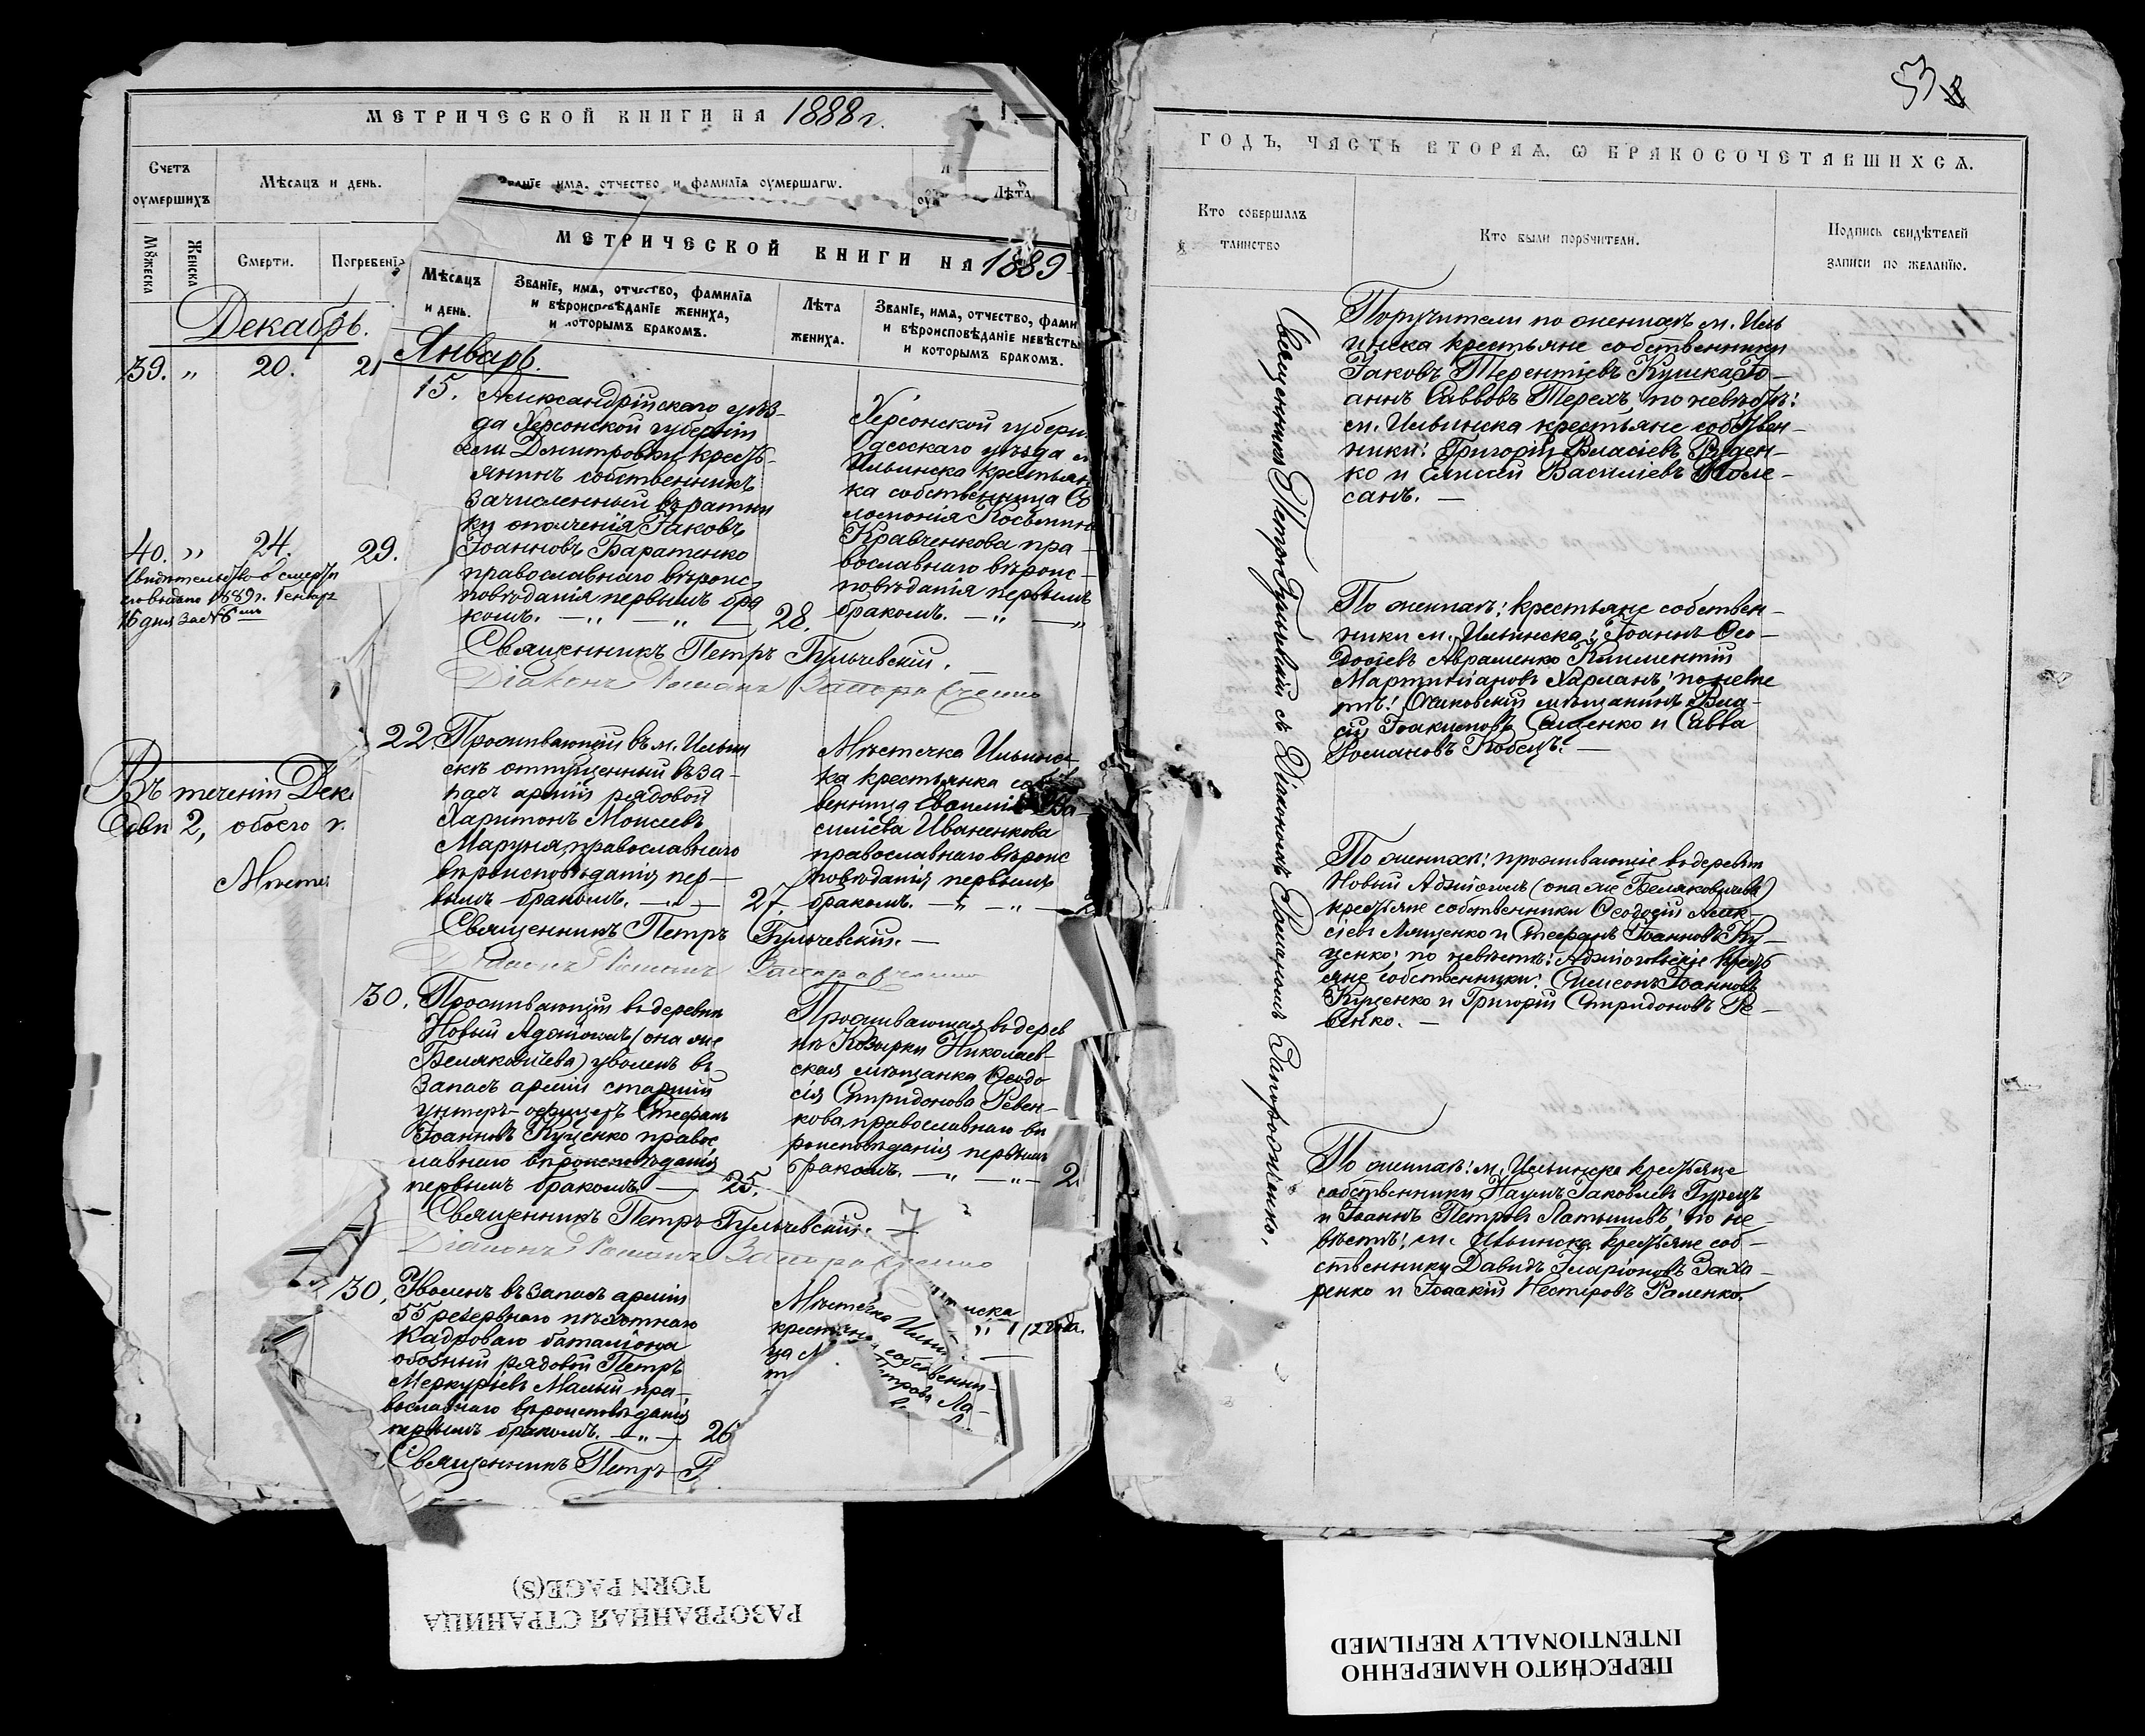 МЕТРИЧЕСКОЙ КНИГИ НА 1888 г.
Счетъ оумершихъ
Мѣсяцъ и день.
имя, отчество и фамилія оумершагω.
Лѣта
Мꙋжеска
Женска
Смерти.
Погребенія
Декабрь.
39. „ 20. 21
40. „ 24. 29.
Свидѣтельство о смерти
его выдано 1889 г. Генвар
16 дня за № 6
Въ теченіи Дек
2, обоего
МЕТРИЧЕСКОЙ КНИГИ НА 1889
Мѣсяцъ
и день.
Званіе, имя, отчество, фамилія
и вѣроисповѣданіе жениха,
и которымъ бракомъ.
Лѣта
жениха.
Званіе, имя, отчество, фами
и вѣроисповѣданіе невѣсты
и которымъ бракомъ.
Январь.
15. Александрійскаго уѣз-
да Херсонской губерніи
села Дмитровки кресть-
янинъ собственникъ
зачисленный въ ратни
ки ополченія Іаковъ
Іоанновъ Баратенко
православнаго вѣроис-
повѣданія первымъ бра
комъ. — „ — „ — 28.
Херсонской губерн
Одесскаго уѣзда м
Ильинска крестьян
ка собственница Со
ломонія Косьмина
Кравченкова пра-
вославнаго вѣроис-
повѣданія первымъ
бракомъ. — „ — „
Священникъ Петръ Гульчевскій.
Діаконъ Романъ Запорожченко
22. Проживающій въ м. Ильин
скѣ отпущенный въ за-
пасъ арміи рядовой
Харитонъ Моисеевъ
Маруня, православнаго
вѣроисповѣданія пер-
вымъ бракомъ. — „ — 27.
Мѣстечка Ильинс
ка крестьянка соб
венница Евѳимія Ва-
силіева Иваненкова
православнаго вѣроис
повѣданія первымъ
бракомъ. — „ — „ —
Священникъ Петръ Гульчевскій. —
Діаконъ Романъ Запорожченко
30. Проживающій въ деревни
Новый Аджіголъ (она же
Беляковичева) уволенъ въ
запасъ арміи старшій
унтеръ-офицеръ Стефанъ
Іоанновъ Куценко правос
лавнаго вѣроисповѣданія
первымъ бракомъ. — 25.
Проживающая въ дерев
нѣ Козырки Николаев-
ская мѣщанка Ѳеодо
сія Спиридонова Ревен-
кова, православнаго вѣ
роисповѣданія первымъ
бракомъ. — „ — „ — 2
Священникъ Петръ Гульчевскій.
Діаконъ Романъ Запорожченко
30. Уволенъ въ запасъ арміи
55 резервнаго пѣхотнаго
кадроваго баталіона
обозный рядовой Петръ
Меркуріевъ Малый пра-
вославнаго вѣроисповѣданія
первымъ бракомъ. — „ — 26
Мѣстечка Ильи нска
крестьянка собственни-
ца
Петрова Ла-
„ 1/2 года.
Священникъ Петръ Г
53
ГОДЪ, ЧАСТЬ ВТОРАЯ, Ѡ БРАКОСОЧЕТАВШИХСЯ.
Кто совершалъ
таинство
Кто были порꙋчители.
Подпись свидѣтелей
записи по желанію.
Священникъ Петръ Гульчевскій съ Діакономъ Романомъ Запорожченко.
Поручители по женихѣ м. Иль
инска крестьяне собственники
Іаковъ Терентіевъ Кушка, Іо-
аннъ Саввовъ Терехъ; по невѣстѣ:
м. Ильинска крестьяне собствен-
ники: Григорій Власіевъ Руден-
ко и Елисей Василіевъ Коле-
санъ. —
По женихѣ: крестьяне собствен-
ники м. Ильинска: Іоаннъ Ѳео-
досіевъ Авраменко Климентій
Мартиніановъ Харманъ; по невѣ
стѣ: Очаковскій мѣщанинъ Вла-
сій Іоакимовъ Сищенко и Савва
Романовъ Кобецъ. —
По женихѣ: проживающіе въ деревни
Новый Аджіголъ (она же Беляковичева)
крестьяне собственники Ѳеодосій Алек-
сіевъ Лященко и Стефанъ Іоанновъ Ку-
ценко; по невѣстѣ: Аджигольскіе крест
яне собственники: Симеонъ Іоанновъ
Куценко и Григорій Спиридоновъ Ре-
венко. —
По женихѣ: м. Ильинска крестьяне
собственники Наумъ Іаковлевъ Гурецъ
и Іоаннъ Петровъ Латышевъ; по не-
вѣстѣ: м. Ильинска крестьяне соб-
ственники Давидъ Иларіоновъ Заха-
ренко и Іоаакій Нестеровъ Раленко.
РАЗОРВАННАЯ СТРАНИЦА
TORN PAGE(S)
ПЕРЕСНЯТО НАМЕРЕННО
INTENTIONALLY REFILMED